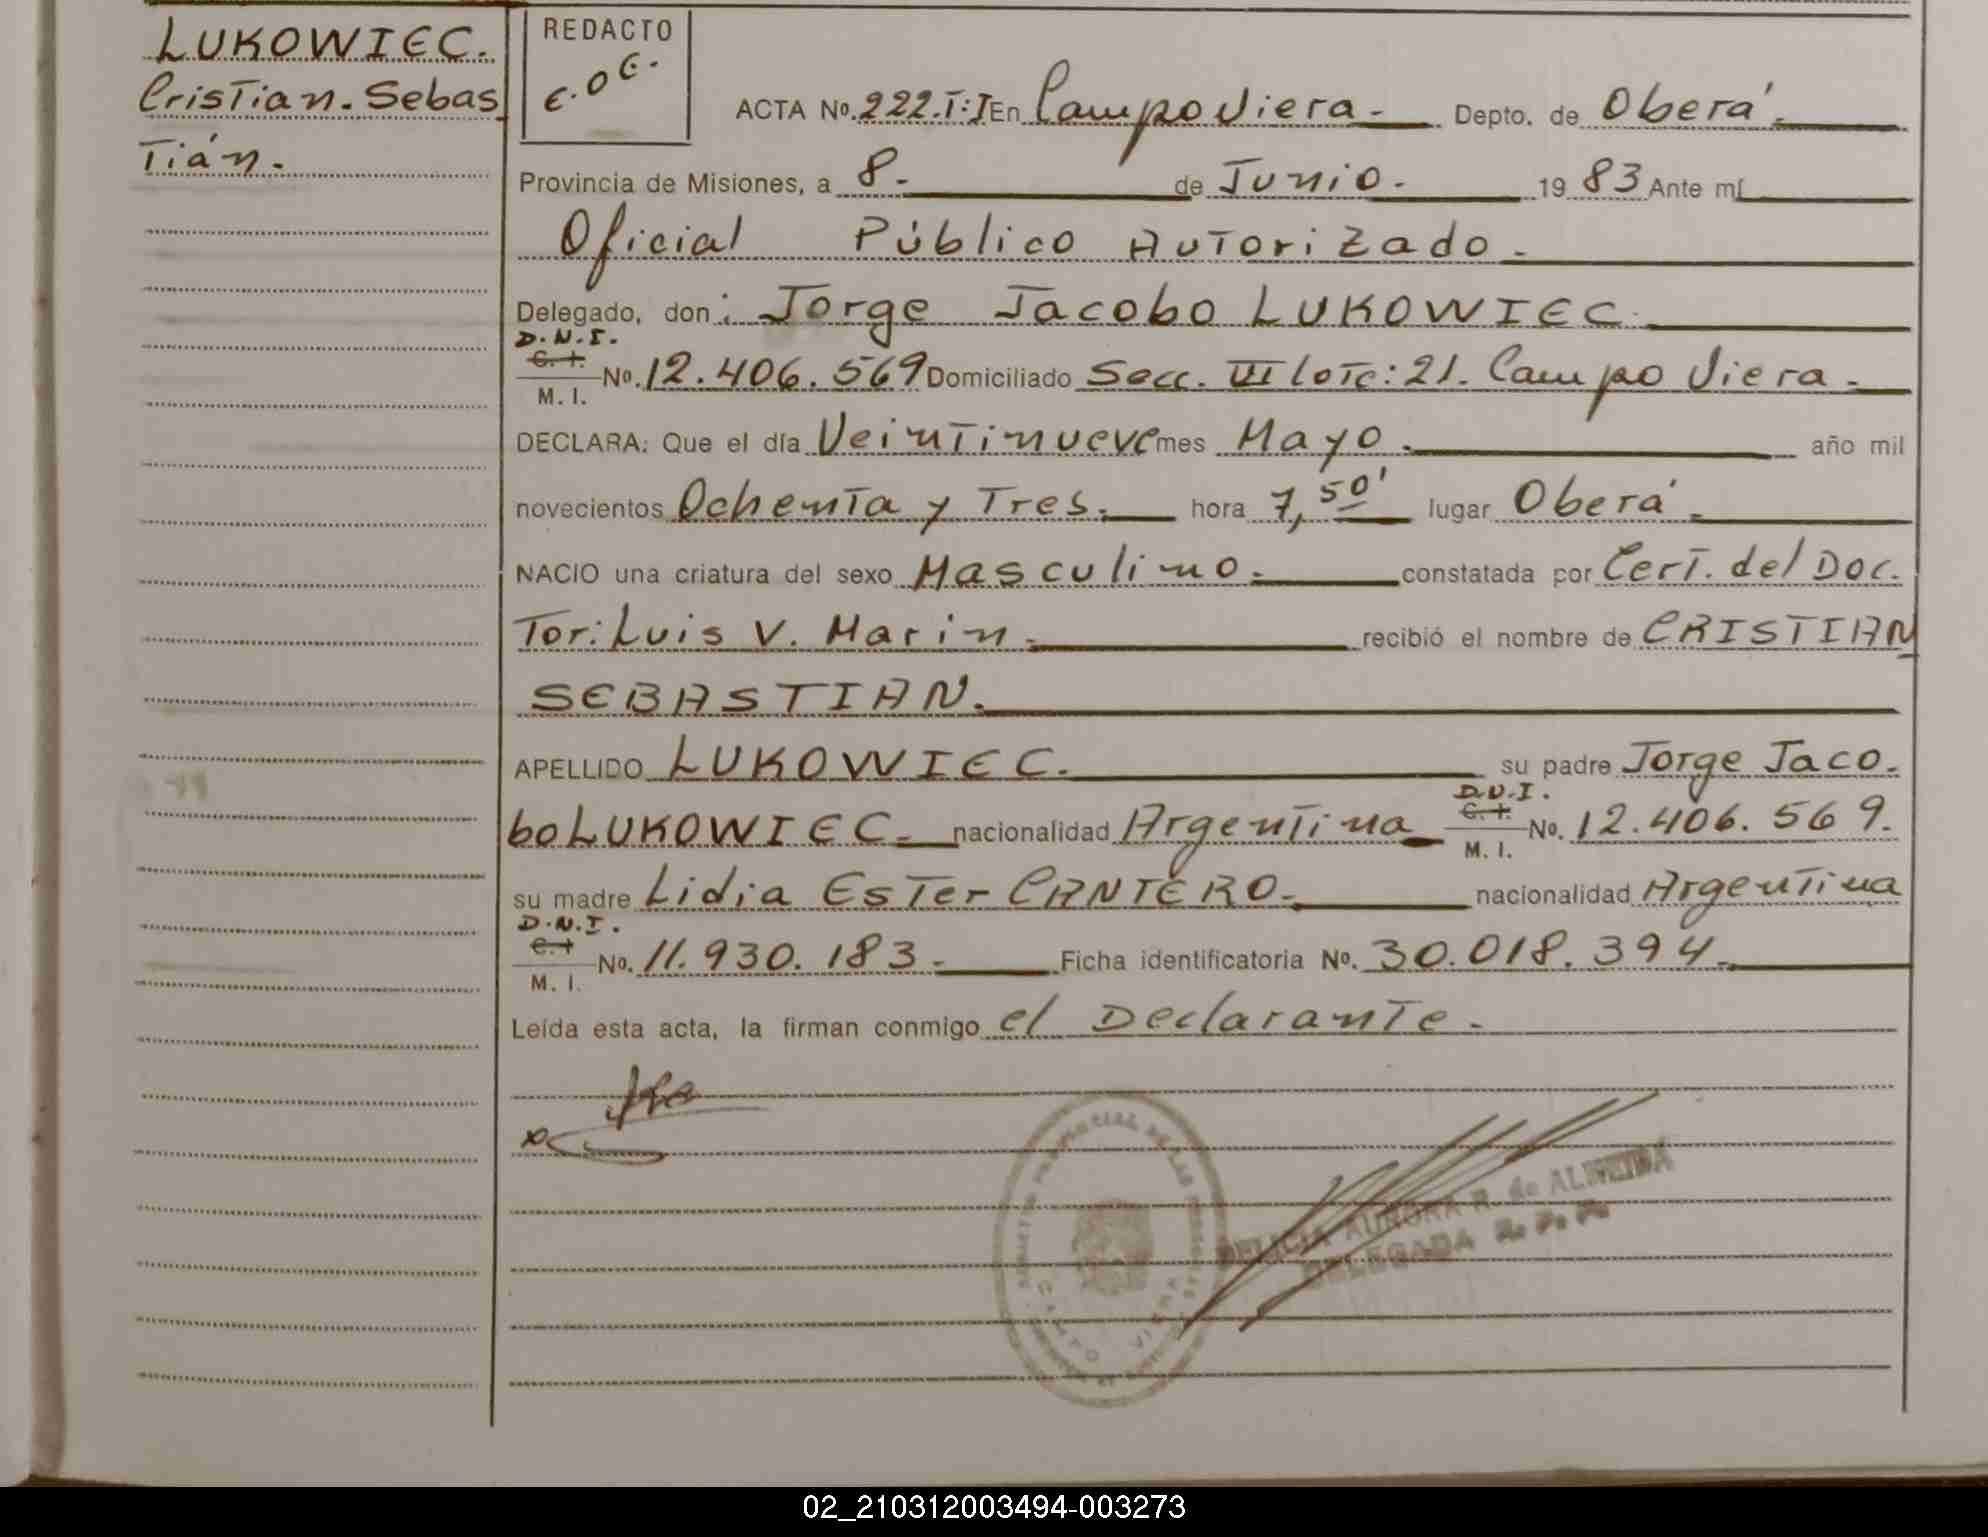 LUKOWIEC.
Cristian. Sebas
Tián.
REDACTO
E.O.E.
ACTA No. 222.T:I En Campo Viera.- Depto. de Oberá.-
Provincia de Misiones, a 8.- de Junio.- 19 83 Ante mí
Oficial Público Autorizado.-
Delegado, don: Jorge Jacobo LUKOWIEC.
D.N.I.
C.I.
M. I.
No. 12.406.569 Domiciliado Secc. VI lote: 21. Campo Viera.-
DECLARA: Que el día Veintinueve mes Mayo.- año mil
novecientos Ochenta y Tres.- hora 7,50' lugar Oberá.-
NACIO una criatura del sexo Masculino.- constatada por Cert. del Doc.
Tor: Luis V. Marin.- recibió el nombre de CRISTIAN
SEBASTIAN.-
APELLIDO LUKOWIEC.- su padre Jorge Jaco.
D.N.I.
bo LUKOWIEC.- nacionalidad Argentina C.I. M. I. No. 12.406.569.
su madre Lidia Ester CANTERO.- nacionalidad Argentina
D.N.I.
C.I
M. I.
No. 11.930.183.- Ficha identificatoria No. 30.018.394.-
Leída esta acta, la firman conmigo el Declarante.-
CAMPO VIERA
DELICIA AURORA R. de ALMEIDA
DELEGADA R. P. P.
02_210312003494-003273